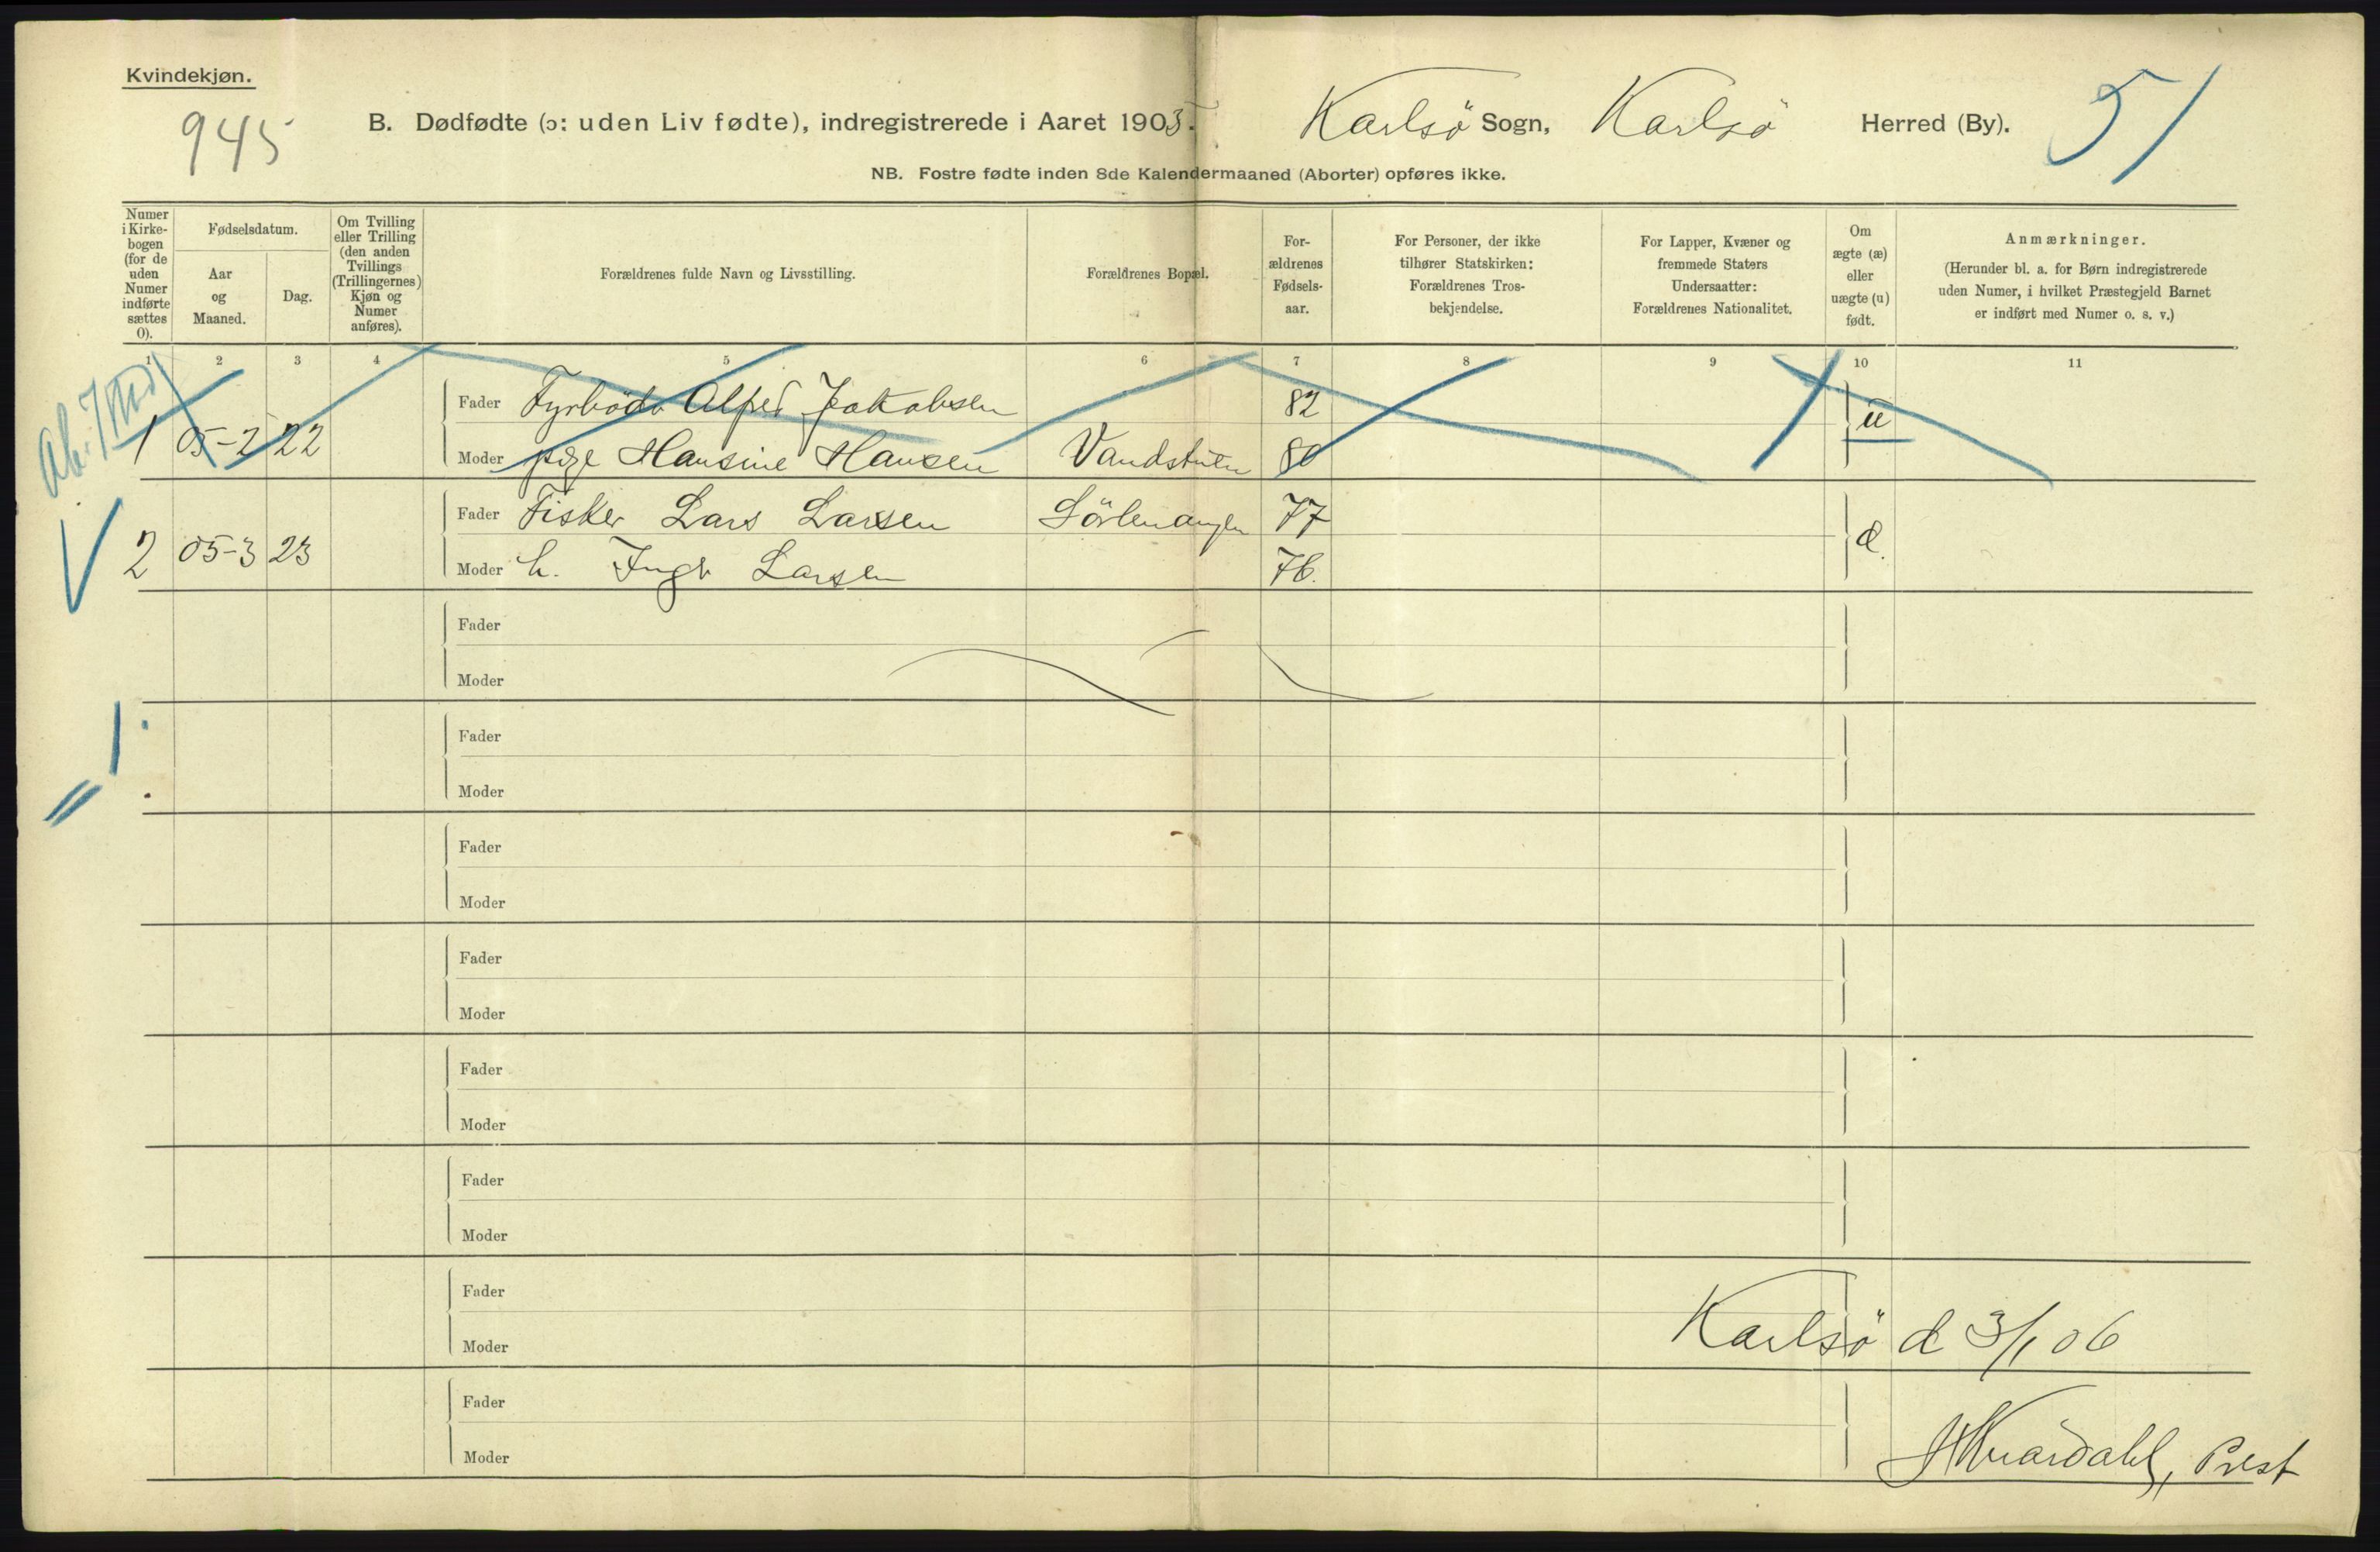 Kvindekjøn.
945
B. Dødfødte (ɔ: uden Liv fødte), indregistrerede i Aaret 1905. Karlsö Sogn, Karlsö Herred (By).
51
NB. Fostre fødte inden 8de Kalendermaaned (Aborter) opføres ikke.
Numer i Kirkebogen (for de uden Numer indførte sættes 0).
Fødselsdatum.
Aar og Maaned.
Dag.
Om Tvilling eller Trilling (den anden Tvillings (Trillingernes) Kjøn og Numer anføres).
Forældrenes fulde Navn og Livsstilling.
Forældrenes Bopæl.
For-ældrenes Fødsels-aar.
For Personer, der ikke tilhører Statskirken: Forældrenes Tros-bekjendelse.
For Lapper, Kvæner og fremmede Staters Undersaatter: Forældrenes Nationalitet.
Om ægte (æ) eller uægte (u) født.
Anmærkninger.
(Herunder bl. a. for Børn indregistrerede uden Numer, i hvilket Præstegjeld Barnet er indført med Numer o. s. v.)
1 2 3 4 5 6 7 8 9 10 11
Fader Fyrböder Alfred Jakobsen 82
1 05-2 22 u
Moder pige Hansine Hansen 80
Fader Fisker Lars Larsen 77
2 05-3 23 æ.
Moder h. Larsen 76.
Fader
Moder
Fader
Moder
Fader
Moder
Fader
Moder
Fader
Moder
Fader
Moder
Fader
Moder
Fader
Moder
= 1
Karlsö d 3/1 06
Prest